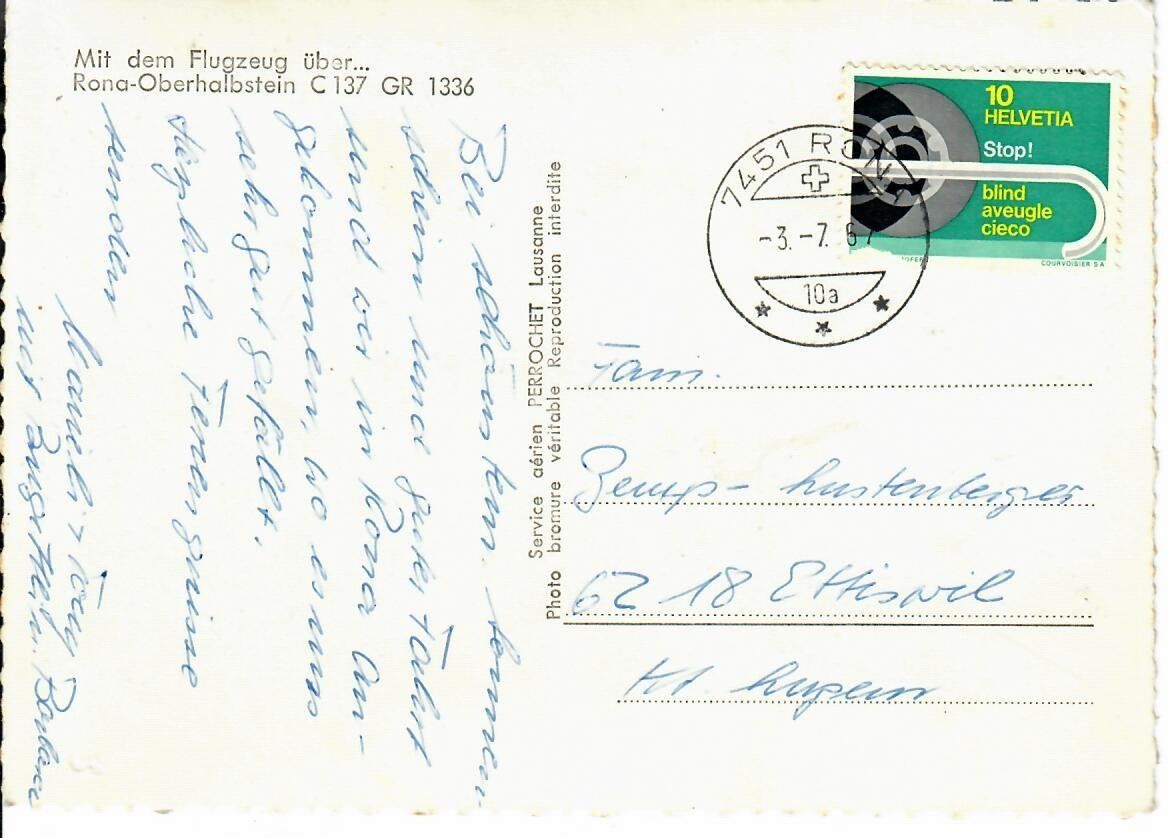 Mit dem Flugzeug über...
Rona-Oberhalbstein C 137 GR 1336
Bei schönstem Sonnen-
schein und guter Fahrt
sind wir in Rona an-
gekommen, wo es uns
sehr gut gefällt.
Herzliche Feriengrüsse
senden
Tony
mit Brigitte u. Barbara
Service aérien PERROCHET Lausanne
Photo bromure véritable Reproduction interdite
10
HELVETIA
Stop!
blind
aveugle
cieco
COURVOISIER S A
7451 RONA
-3.-7. 67
10a
Fam.
Zemp-Lustenberger
6218 Ettiswil
Kt. Luzern